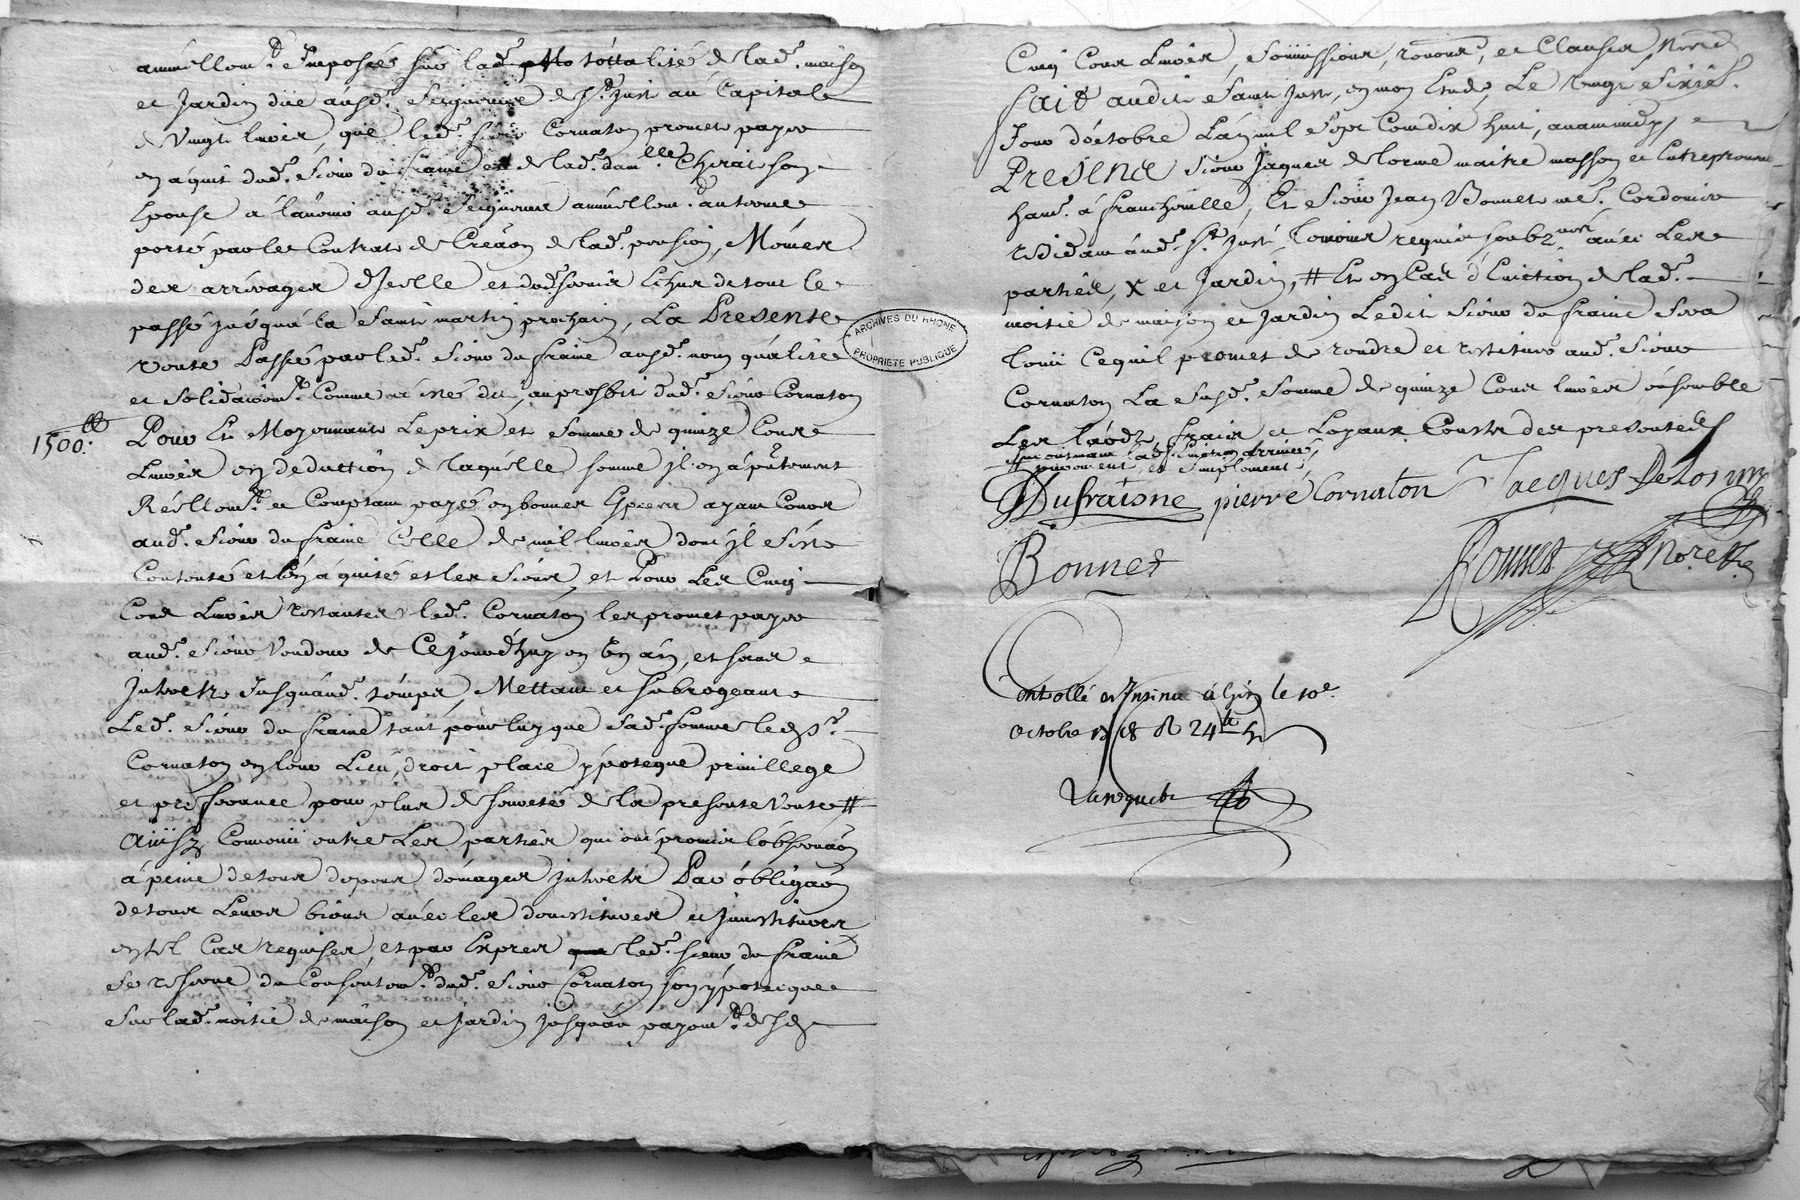 annuellem.t imposée sur lad.e totta lité de lad.e maison
et Jardin düe ausd. seigneurs de St Just au Capitale
de vingt livres, que led. sieur Cornaton promets payer
en aquit dud. sieur du fraine et de lad.e dam.lle Chirat son
Epouse a l'avenir ausd. seigneurs annuellem.t au terme
porté par le Contrat de Creaon de lad.e pension, Mesmes
des arrérages d'jcelle et dud. servis Echus de tout le
passé jusqu'a la saint martin prochain, La Presente
vente Passée par led. sieur du fraine ausd. nom qualité
et solidairem.t Comme a esté dit, au proffit dud. sieur Cornaton
1500.tt
Pour Et Moyennant Le prix et somme de quinze Cent
Livres en deduction de laquelle somme jl en a p̄ntement
Réellem.t et Comptant payée en bonnes Especes ayant Cours
aud. sieur du fraine Celle de mil livres dont jl s'est
Contenté et En a quité et les siens, et Pour Les Cinq
Cens Livres restantes led. Cornaton les promet payer
aud. sieur Vendeur de Cejourd'huy en Un an, et sans
Interetz Jusqu'aud. temps, Mettant et subrogeant
Led. sieur du fraine tant pour luy que sad. femme led. sr.
Cornaton en leur Lieu, droit place ypoteque privillege
et preferance pour plus de seureté de la presente Vente #
Ainsy Convenu entre Les parties qui ont promis l'observaon
à peine de tous depens domages Interets Par obligaon
de tous Leurs biens avec les
en tel Cas requises, et par Exprès led. sieur du fraine
se reserve du Consentem.t dud. sieur Cornaton son ypoteque
sur lad.e moitié de maison et jardin jusqu'au payem.t desd.
Cinq Cens Livres, soumissions, renon.s, et Clauses,
fait audit saint Just, en mon Etude, Le vingt sixie.
Jour d'octobre L'an mil sept Cent dix huit, avant midy
Presens sieur Jaques delorme maitre masson et Entrepreneur
hant. à francheville, Et sieur Jean Bonnet me. Cordonier
residant aud. St Just, temoins requis soubz.nés avec Les
parties, X et Jardin, # Et en Cas d'Eviction de lad.e
moitié de maison et Jardin Ledit sieur du fraine sera
tenü Ce qu'il promet de rendre et restituer aud. sieur
Cornaton La susd.e somme de quinze Cens livres ensemble
Les laodz, frais et Loyaux Cousts des presentes
DuFraisne pierre Cornaton Jacques DeLorme
Bonnet Bonnet Nore
Controllé et Insinué à Lyon le 10e.
Octobre 1718 R 24tt
ARCHIVES DU RHONE
PROPRIETE PUBLIQUE